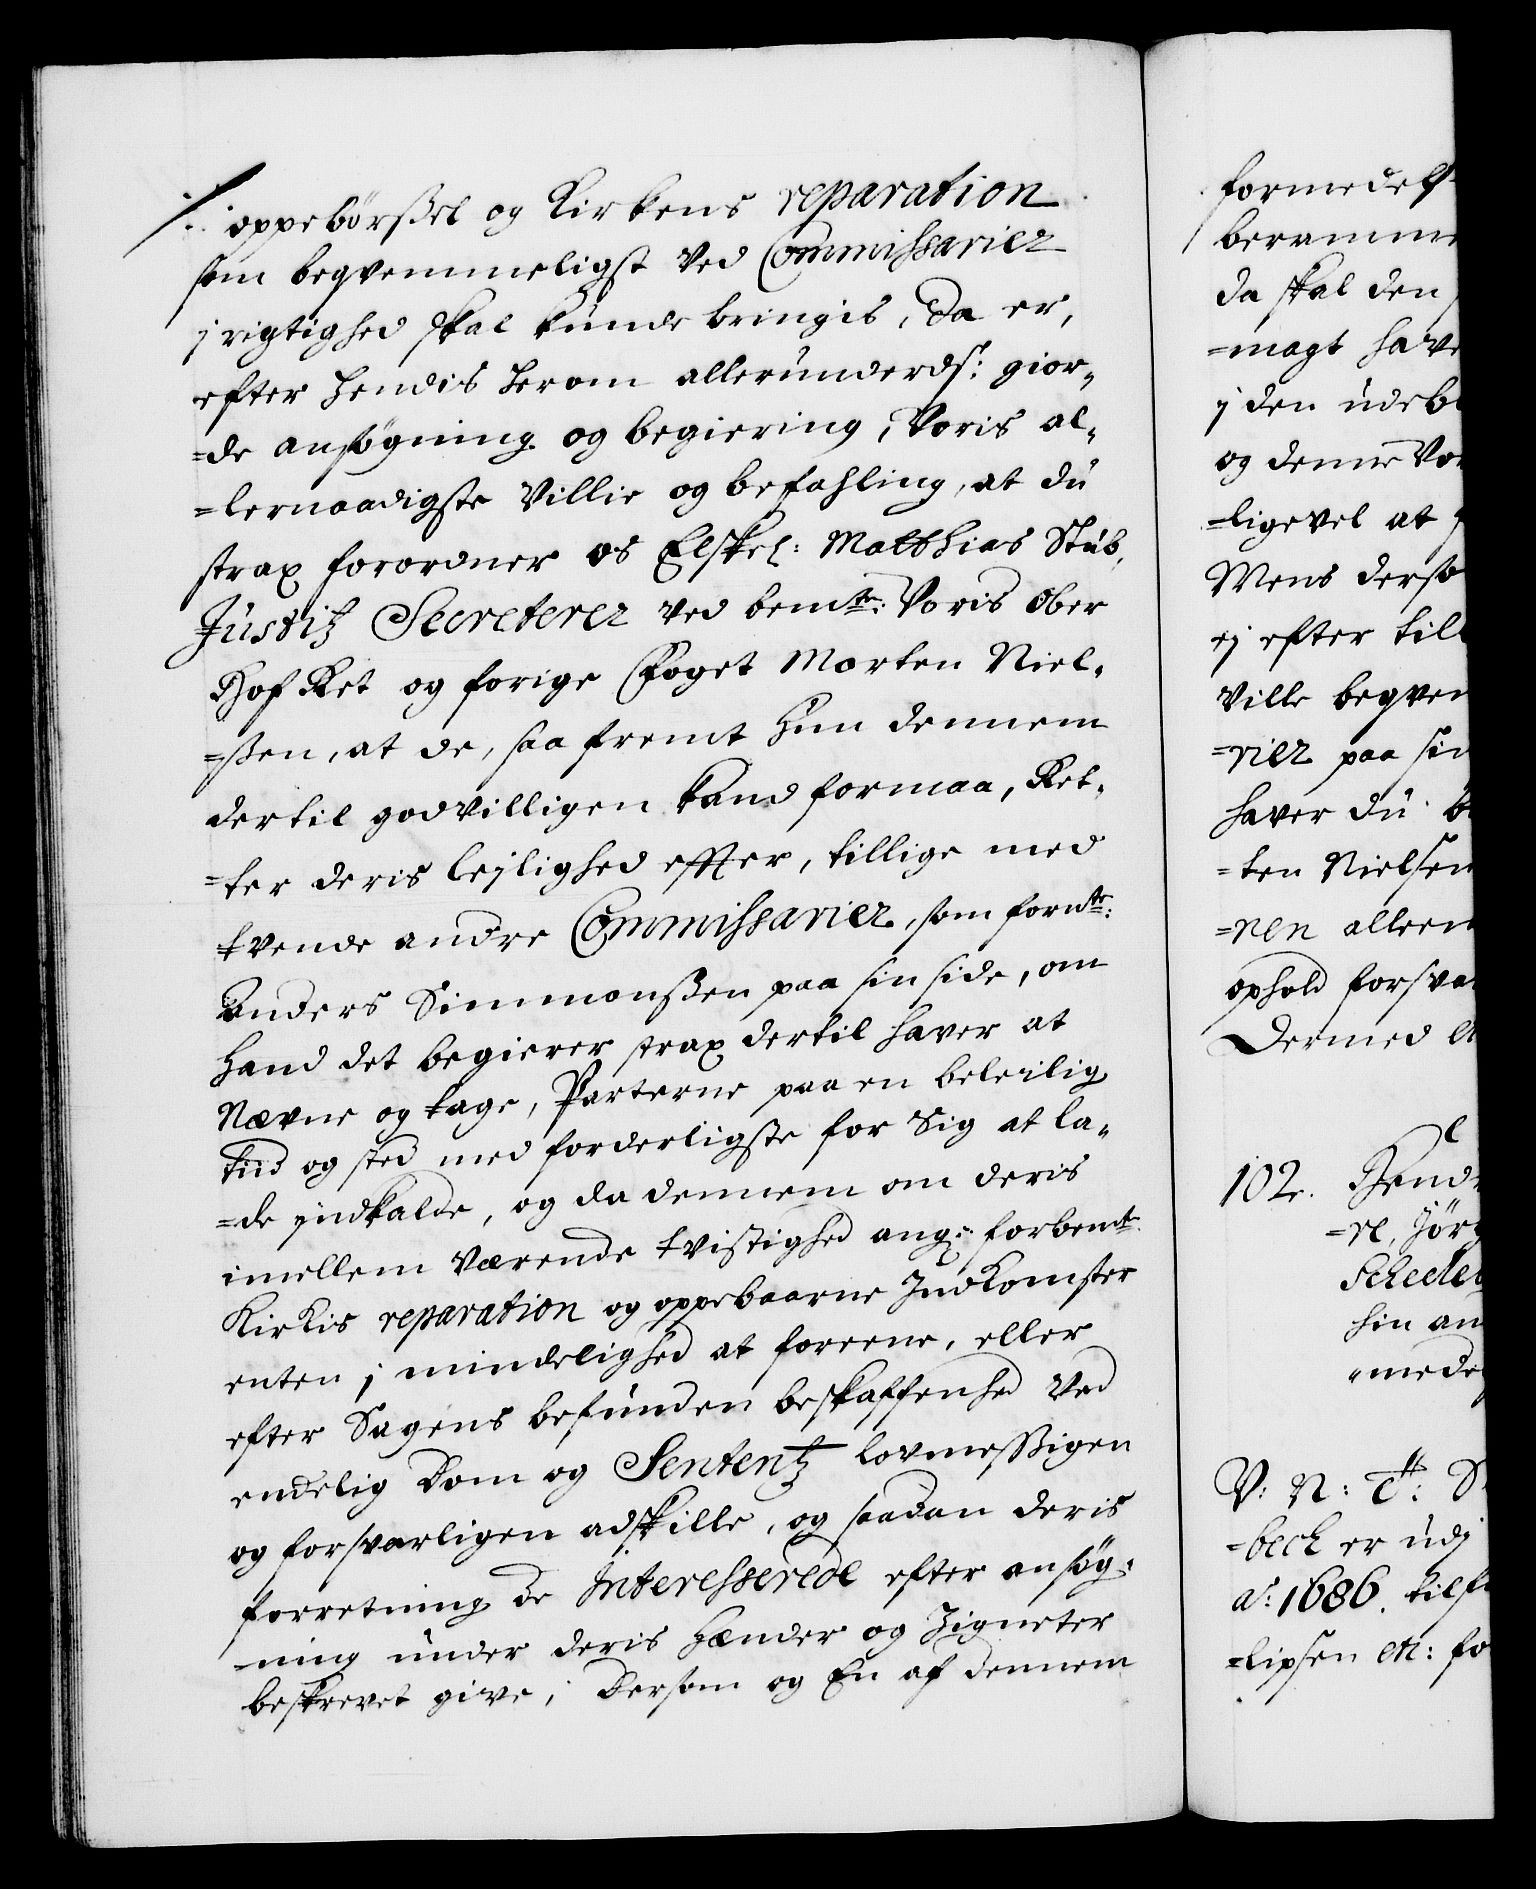 oppebørßel og Kirkens reparation
som beqvemmeligst ved Commissarier
j rigtighed skal kunde bringis, da er,
efter hendis herom allerunderds: gior„
=de ansøgning og begiering, Voris al„
=lernaadigste Villie og befahling, at du
strax forordner os Elskel: Matthias Stub,
Justitz Secreterer ved bemte: Voris Ober
Hof Ret og forige Foget Morten Niel„
=ßen, at de, saa fremt hun dennem
dertil godvilligen kand formaa, Ret„
=ter deris lejlighed effter, tillige med
tvende andre Commissarier, som fornte:
Anders Simmonßen paa sin side, om
hand det begierer strax dertil haver at
Nævne og tage, Parterne paa en beleilig
tiid og sted med forderligste for sig at la„
=de jndkalde, og da dennem om deris
imellem værende tvistighed ang: forbemte
Kirkis reparation og oppebaarne Indkomster
enten j mindelighed at foreene, eller
efter Sagens befunden beskaffenhed ved
endelig Dom og Sententz lovmessigen
og forsvarligen adskille, og saadan deris
forretning de Interesserede efter ansøg„
=ning under deris Hænder og Zigneter
beskrevet give, Dersom og En af dennem
formedelst
beramme
da skal den
=magt have
j den udebl
og denne Vor
=ligevel at
Mens derso
ej efter till
ville beqvem
=rier paa sin
haver du
=ten Nielsen
=nen alleen
ophold forsva
Dermed
102.
Hend
=re, Jør
hin an
=mede
V: N: T:
=bech er udj
a: 1686. tilf
=lipsen etc: fo